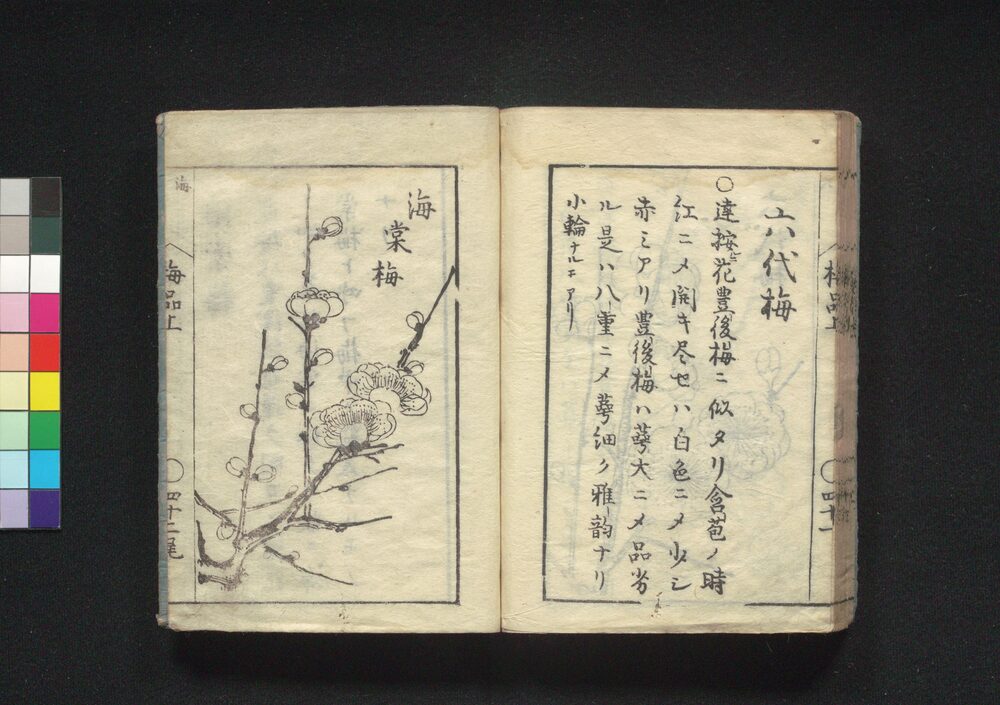 六代梅
○達按ニ花豊後梅ニ似タリ含苞ノ時
紅ニメ開キ尽セハ白色ニメ少シ
赤ミアリ豊後梅ハ萼大ニメ品劣
ル是ハ八重ニメ萼細ク雅韻ナリ
小輪ナルモアリ
梅品上
四十一
海棠梅
梅品上
○四十二尾